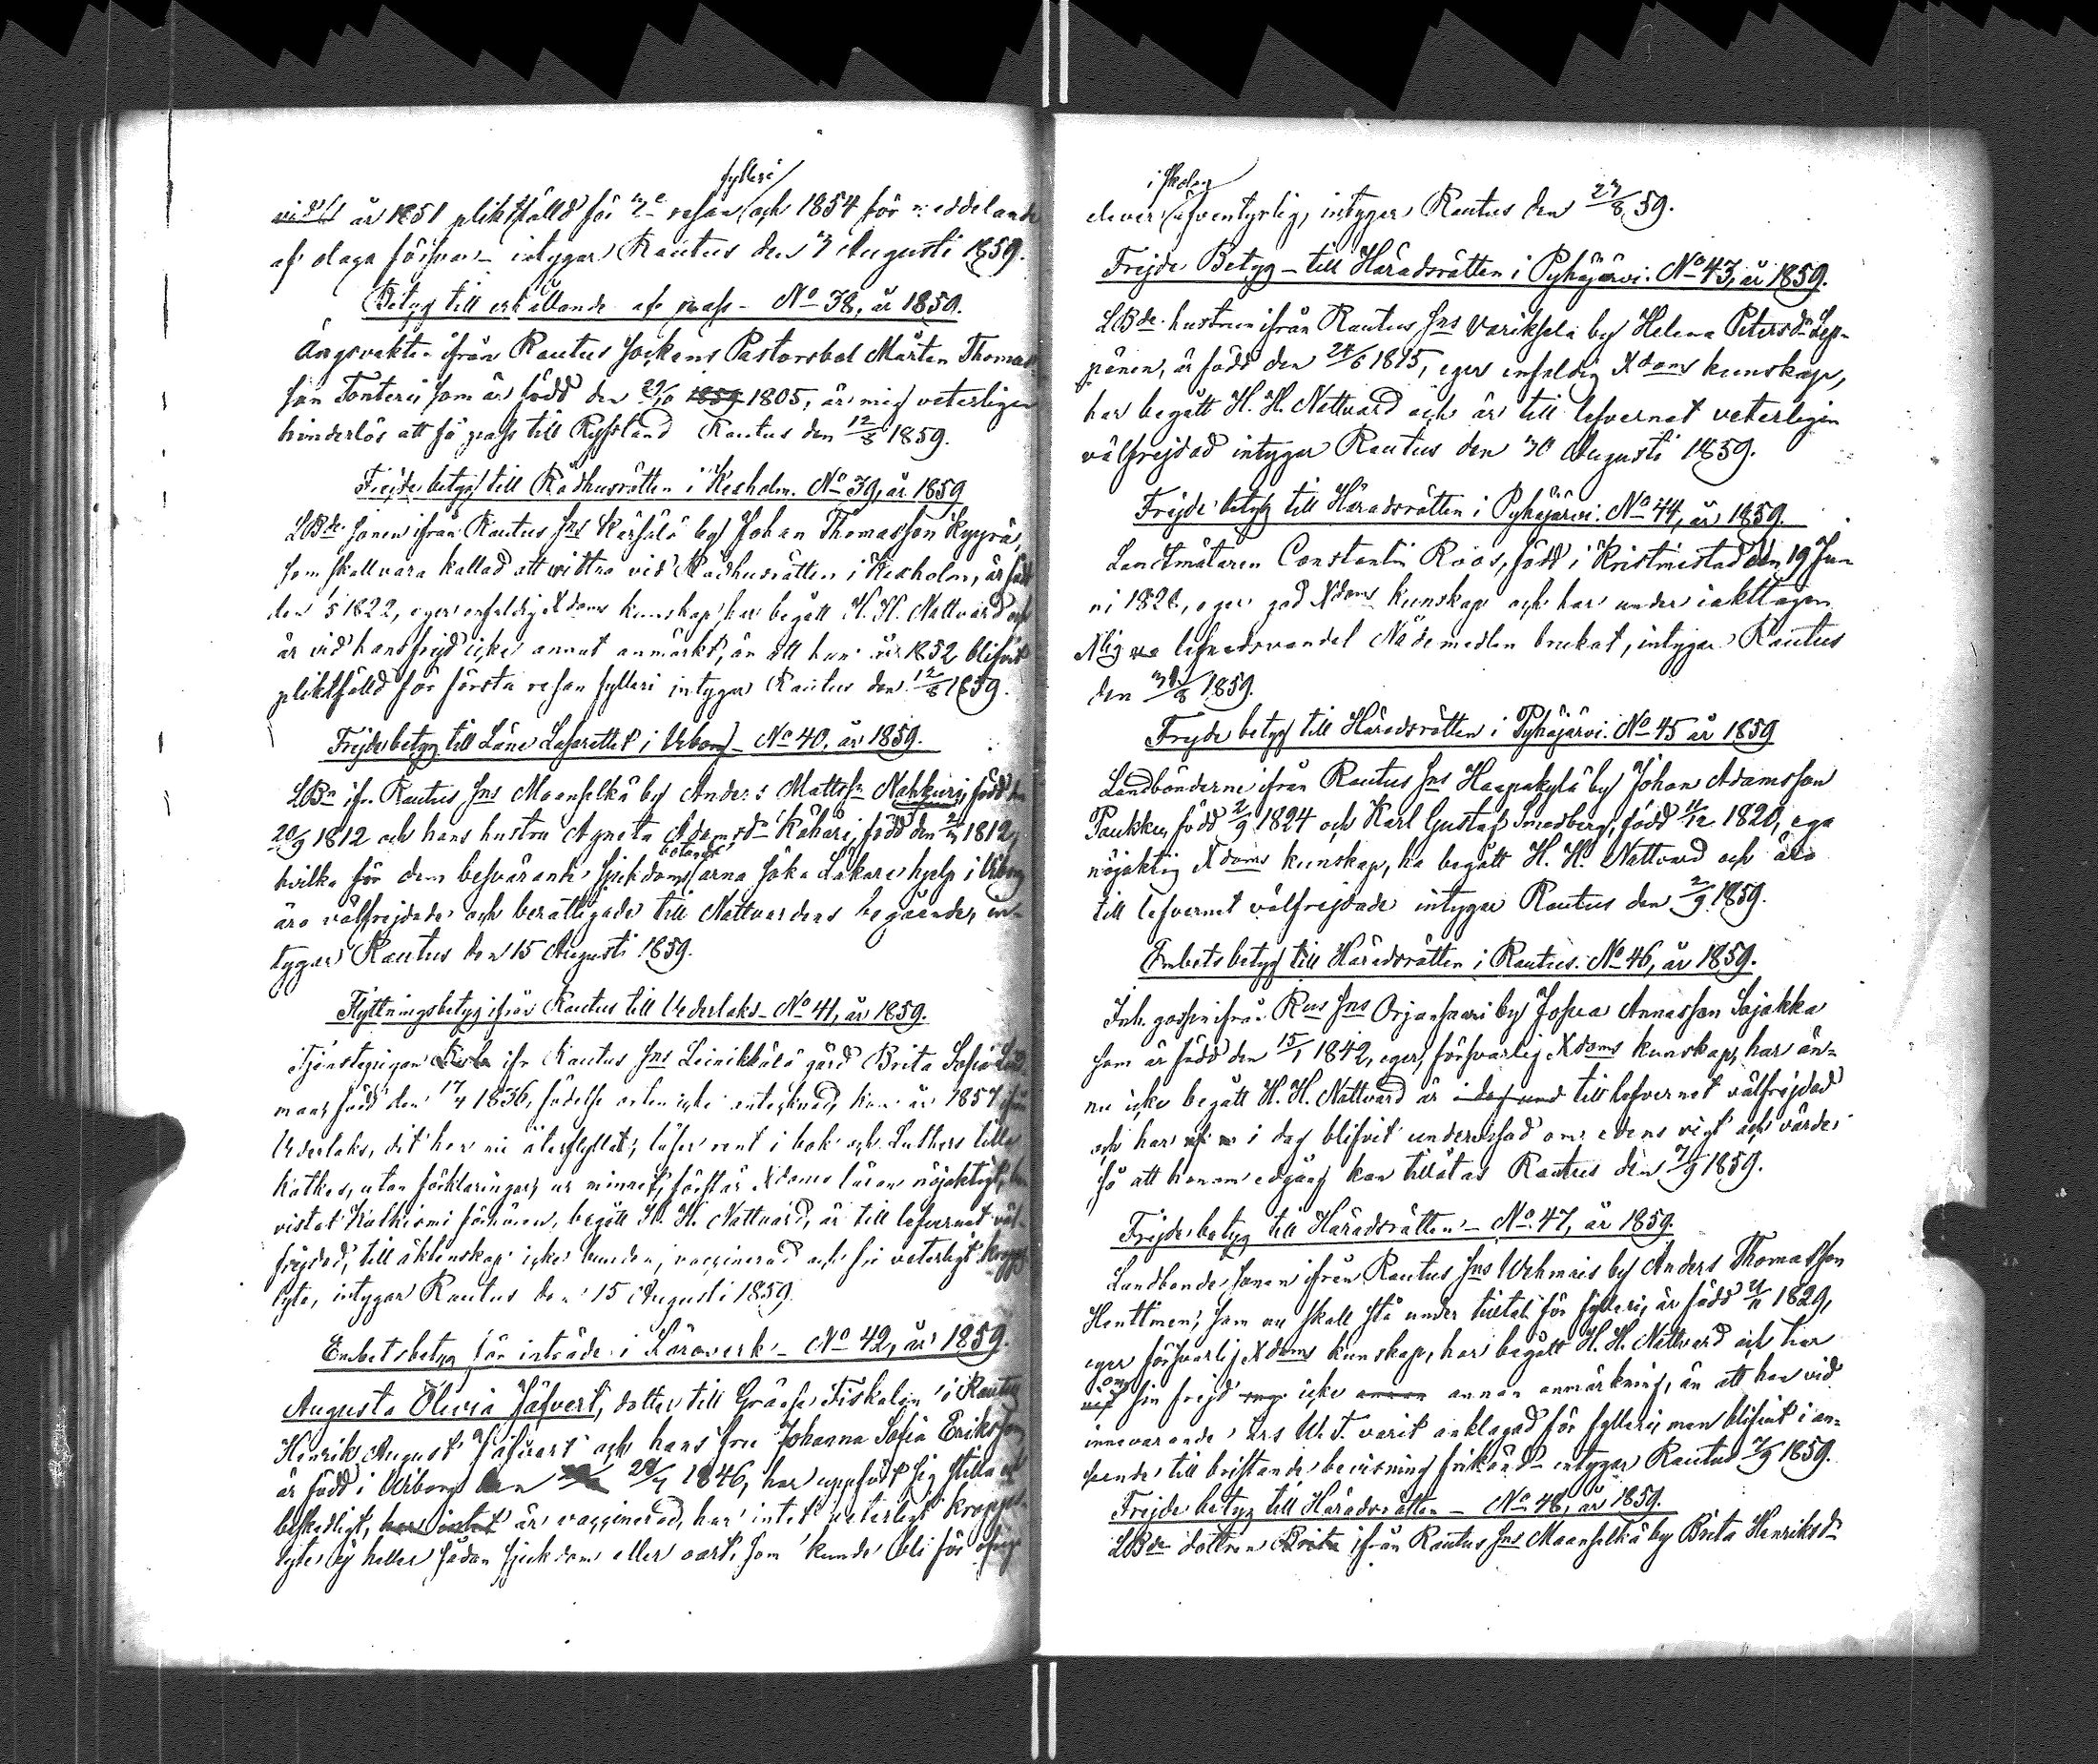 fylleri
år 1851 pliktfälld för 3e resan och 1854 för meddelande
af olaga försvar – intygar Rautus den 3 Augusti 1859.
Betyg till erhållande af pass – No 38, år 1859.
Ängsvakten ifrån Rautus Sockens Pastorsbol Mårten Thomas
son Tonteri, som är född den 29/10 1859 1805, är mig veterligen
hinderlös att få pass till Ryssland Rautus den 12/8 1859.
Frejdebetyg till Rådhusrätten i Kexholm. No 39, år 1859
LBde sonen ifrån Rautus Sns Kärsälä by Johan Thomasson Kyyrä,
som skall vara kallad att vittna vid Rådhusrätten i Kexholm, är född
den 1822, eger enfaldig Xdoms kunskap, har begått H. H. Nattvard och
är vid hans frejd icke annat anmärkt, än att han år 1852 blifvit
pliktfälld för första resan fylleri intygar Rautus den 12/8 1859.
Frejdebetyg till Läne Lasarettet i Viborg – No 40, år 1859.
LBn ifr. Rautus Sns Maanselkä by Anders Mattsn Nahkuri, född den
20/9 1812 och hans hustru Agneta Adamsdr Kähäri, född den 1812,
botande
hvilka för dem besvärande sjukdomarna söka Läkare hjelp i Viborg
äro välfrejdade och berättigade till Nattvardens begående, in-
tygar Rautus den 15 Augusti 1859.
Flyttningsbetyg ifrån Rautus till Vederlaks – No 41, år 1859.
Tjenstepigan ifr Rautus Sns Leinikkälä gård Brita Sofia
man, född den 17/4 1836, födelse orten icke antecknad, kom år 1857 ifrån
Vederlaks, dit hon nu återflyttat; läser rent i bok och Luthers lilla
Katkes, utan förklaringar, ur minnet, förstår Xdoms läran nöjaktigt, har
vistat Katkismi förhören, begått H. H. Nattvard, är till lefvernet väl-
frejdad, till äktenskap icke bunden, vaccinerad och fri veterligt kropps
lyte, intygar Rautus den 15 Augusti 1859.
Embetsbetyg för inträde i Läroverk – No 42, år 1859.
Augusta Olivia Jäfvert, dotter till Gränse Fiskalen i Rautus
Henrik August Jäfvert och hans fru Johanna Sofia Eriksson,
är född i Viborg den 28/4 1846, har uppfört sig stilla och
beskedligt, har intet är vaccinerad, har intet veterligt kropps-
lyte ej heller sådan sjukdom eller vart, som kunde bli för öfriga
i skolan
elever äfventyrlig, intygar Rautus den 23/8 59.
Frejde Betyg – till Häradsrätten i Pyhäjärvi. No 43, år 1859.
LBde hustrun ifrån Rautus Sns Varikselä by Helena Petersdr Lep-
pänen, är född den 24/6 1815, eger enfaldig Xdoms kunskap,
har begått H. H. Nattvard och är till lefvernet veterligen
välfrejdad intygar Rautus den 30 Augusti 1859.
Frejde betyg till Häradsrätten i Pyhäjärvi. No 44, år 1859.
Landtmätaren Constantin Roos, född i Kristinestad den 19 Ju-
ni 1828, eger god Xdoms kunskap och har under iakttagen
Xlig lefnadsvandel Nådemedlen brukat, intygar Rautus
den 30/8 1859.
Frejde betyg till Häradsrätten i Pyhäjärvi. No 45 år 1859
Landbönderne ifrån Rautus Sns Haapakylä by Johan Adamsson
Paukku, född 2/9 1824 och Karl Gustaf Smedberg, född 11/12 1820, ega
nöjaktig Xdoms kunskap, ha begått H. H. Nattvard och äro
till lefvernet välfrejdade intygar Rautus den 2/9 1859.
Embetsbetyg till Häradsrätten i Rautus. No 46, år 1859.
Inh. gossen ifrån Rus Sns Orjansaari by Josua Annasson Lojakka
som är född den 15/1 1842, eger försvarlig Xdoms kunskap, har än-
nu icke begått H. H. Nattvard är till lefvernet välfrejdad
och har i dag blifvit undervisad om edens vigt och värde
så att honom edgång kan tillåtas Rautus den 7/9 1859.
Frejdebetyg till Häradsrätten – No 47, år 1859.
Landbonde sonen ifrån Rautus Sns Vehmais by Anders Thomasson
Henttinen, som nu skall stå under tilltal för fylleri, är född 21/11 1829,
eger försvarlig Xdoms kunskap, har begått H. H. Nattvard och har
om
vid sin frejd icke annan anmärkning, än att han vid
innevarande års W. T. varit anklagad för fylleri, men blifvit i an-
seende till bristande bevisning frikänd – intygar Rautus 7/9 1859.
Frejde betyg till Häradsrätten – No 48, år 1859.
LBde dottren Brita ifrån Rautus Sns Maanselkä by Brita Henriksdr